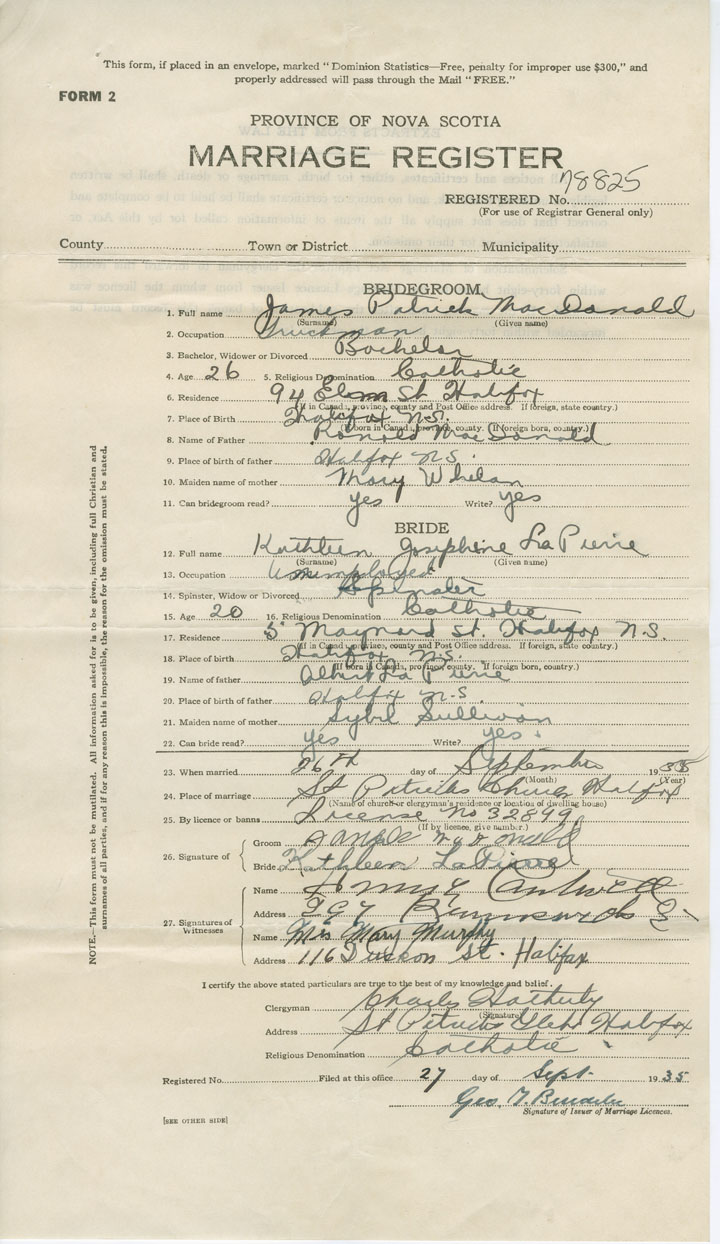 This form, if placed in an envelope, marked "Dominion Statistics—Free, penalty for improper use $300," and
properly addressed will pass through the Mail "FREE."
FORM 2
PROVINCE OF NOVA SCOTIA
MARRIAGE REGISTER
REGISTERED No. 78825
(For use of Registrar General only)
County Town or District Municipality
BRIDEGROOM
1. Full name James Patrick MacDonald
(Surname) (Given name)
2. Occupation Truckman
3. Bachelor, Widower or Divorced Bachelor
4. Age 26 5. Religious Denomination Catholic
6. Residence 94 Elm St Halifax
(If in Canada, province, county and Post Office address. If foreign, state country.)
7. Place of Birth Halifax N.S.
(If born in Canada, province, county. If foreign born, country.)
8. Name of Father Ronald MacDonald
9. Place of birth of father Halifax N.S.
10. Maiden name of mother Mary Whelan
11. Can bridegroom read? yes Write? yes
BRIDE
12. Full name Kathleen Josephine LaPierre
(Surname) (Given name)
13. Occupation Unemployed
14. Spinster, Widow or Divorced Spinster
15. Age 20 16. Religious Denomination Catholic
17. Residence 5 Maynard St. Halifax N.S.
(If in Canada, province, county and Post Office address. If foreign, state country.)
18. Place of birth Halifax N.S.
(If born in Canada, province, county. If foreign born, country.)
19. Name of father Albert LaPierre
20. Place of birth of father Halifax N.S.
21. Maiden name of mother Sybil Sullivan
22. Can bride read? yes Write? yes.
23. When married 26th day of September 1935
(Month) (Year)
24. Place of marriage St Patricks Church Halifax
(Name of church or clergyman's residence or location of dwelling house)
25. By licence or banns License No 32849
(If by licence, give number.)
26. Signature of Groom
Bride Kathleen LaPierre
27. Signatures of Witnesses
Name Cantwell
Address Brunswick
Name Mrs Mary Murphy
Address 116 St. Halifax
I certify the above stated particulars are true to the best of my knowledge and belief.
Clergyman Charles
(Signature)
Address St Patricks Glebe Halifax
Religious Denomination Catholic
Registered No. Filed at this office 27 day of Sept. 1935
Geo.
Signature of Issuer of Marriage Licences.
[SEE OTHER SIDE]
NOTE.—This form must not be mutilated. All information asked for is to be given, including full Christian and
surnames of all parties, and if for any reason this is impossible, the reason for the omission must be stated.